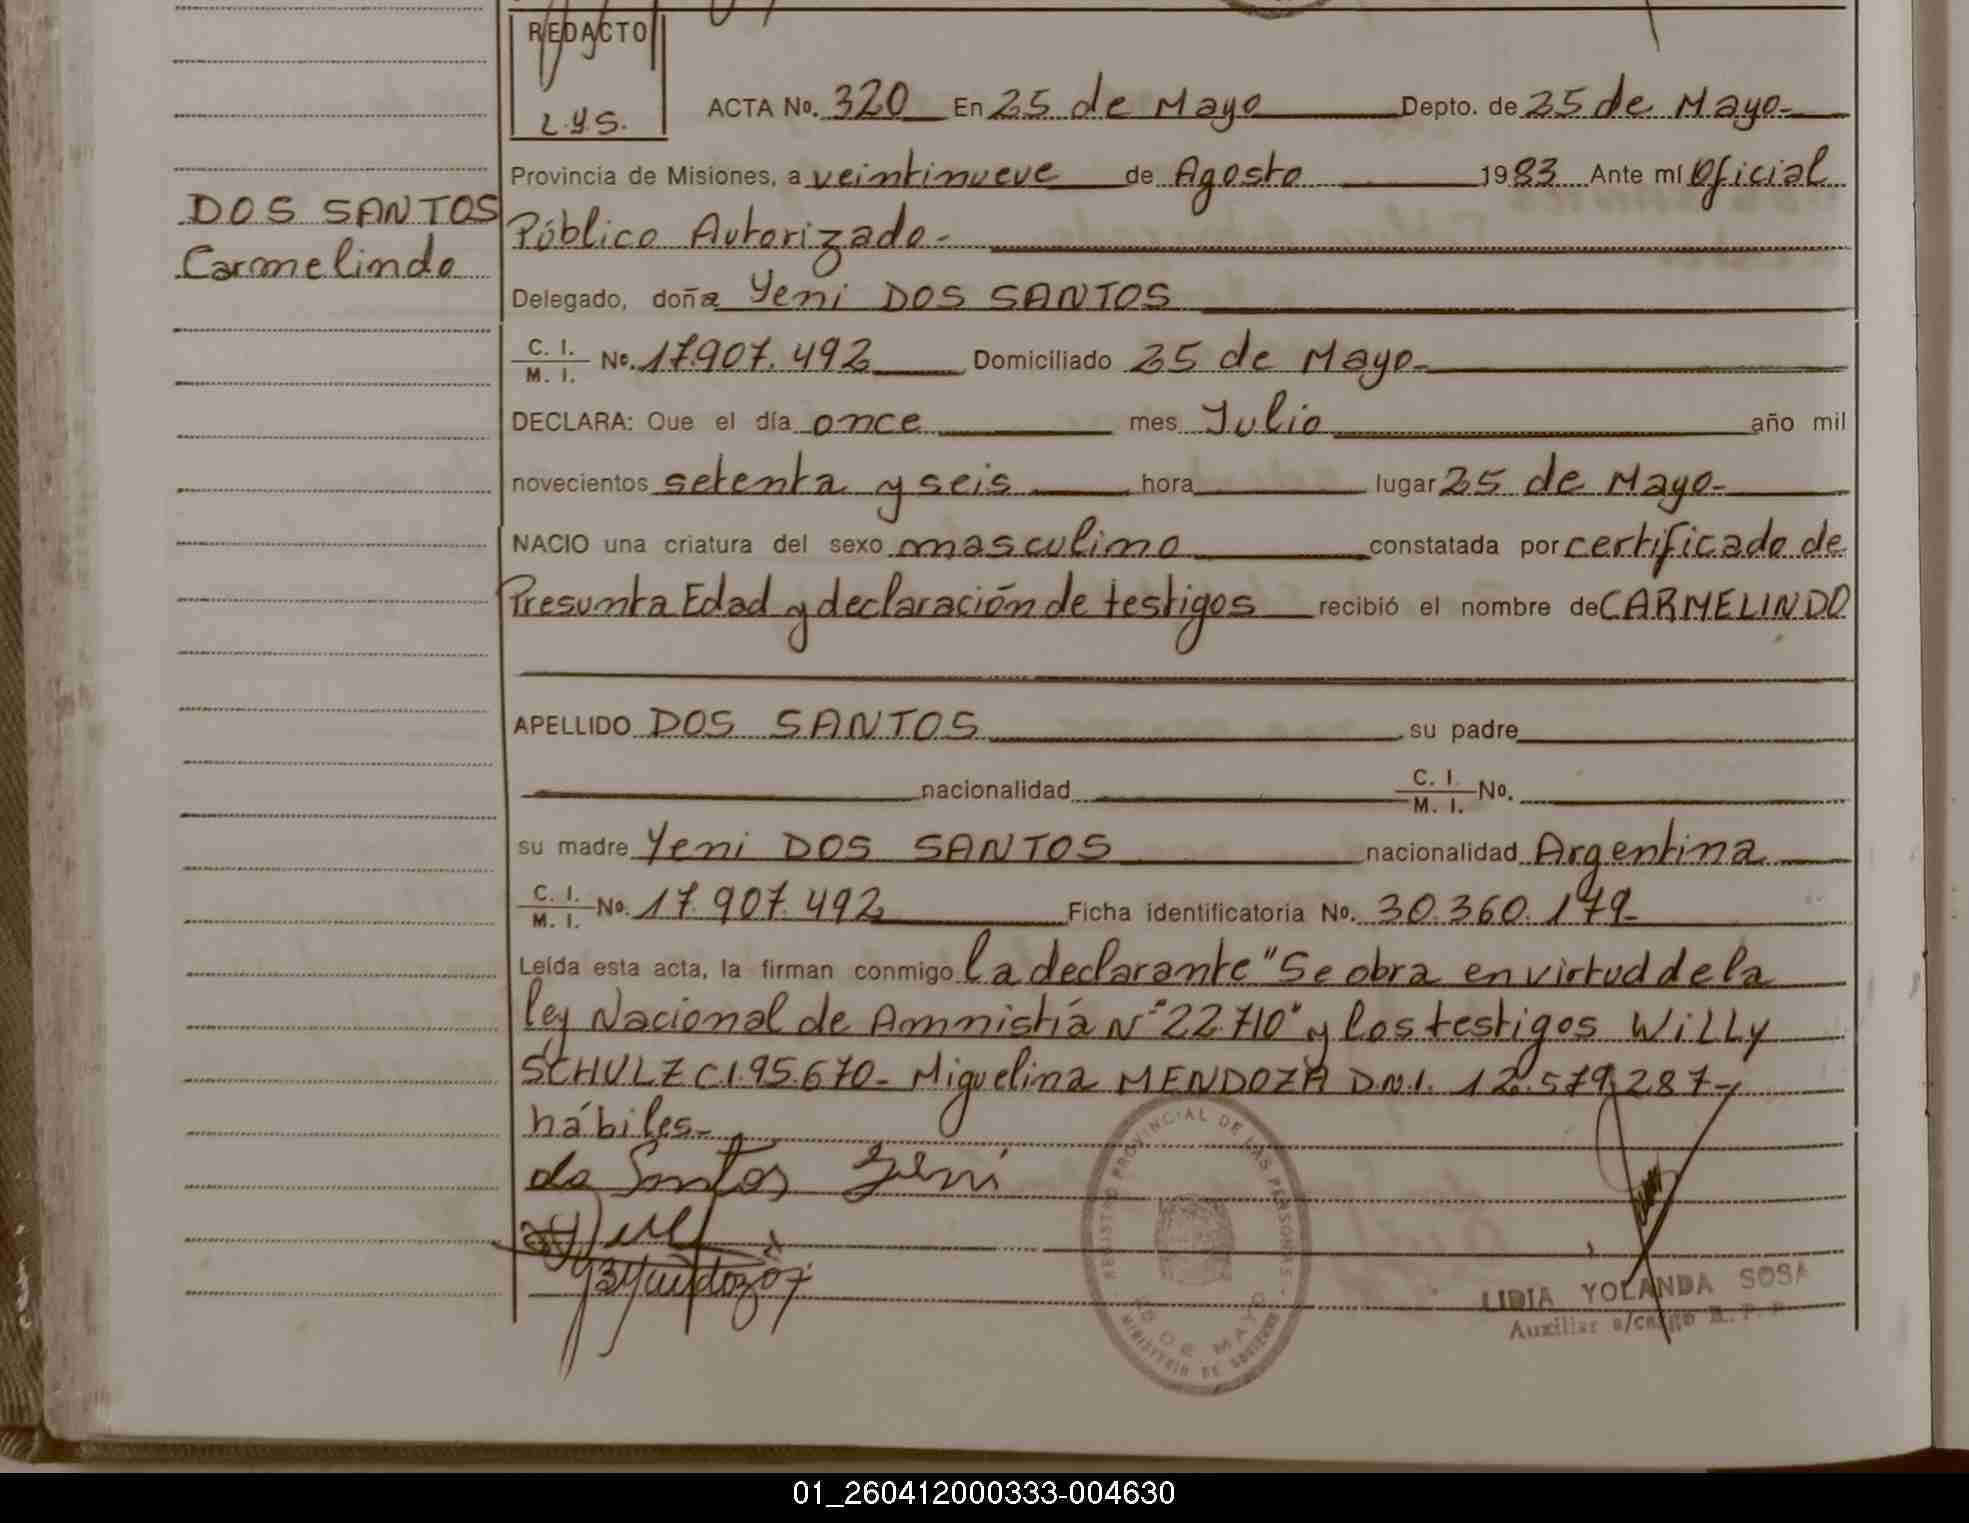 REDACTO
L.Y.S.
ACTA No. 320 En 25 de Mayo Depto. de 25 de Mayo-
Provincia de Misiones, a veintinueve de Agosto 1983 Ante mí Oficial
DOS SANTOS
Carmelindo
Público Autorizado-
Delegado, doña Yeni DOS SANTOS
C. I. / M. I. No. 17.907.492 Domiciliado 25 de Mayo-
DECLARA: Que el día once mes Julio año mil
novecientos setenta y seis hora lugar 25 de Mayo-
NACIO una criatura del sexo masculino constatada por certificado de
Presunta Edad y declaración de testigos recibió el nombre de CARMELINDO
APELLIDO DOS SANTOS su padre
nacionalidad C. I. / M. I. No.
su madre Yeni DOS SANTOS nacionalidad Argentina
C. I. / M. I. No. 17.907.492 Ficha identificatoria No. 30.360.179-
Leída esta acta, la firman conmigo la declarante "Se obra en virtud de la
ley Nacional de Amnistiá N° 22.710" y los testigos WILLY
SCHULZ C.I. 95.670- Miguelina MENDOZA D.N.I. 12.579.287-
hábiles-
do Santos Yeni
REGISTRO PROVINCIAL DE LAS PERSONAS
25 DE MAYO
MINISTERIO DE GOBIERNO
LIDIA YOLANDA SOSA
Auxiliar a/cargo R. P. P.
01_260412000333-004630